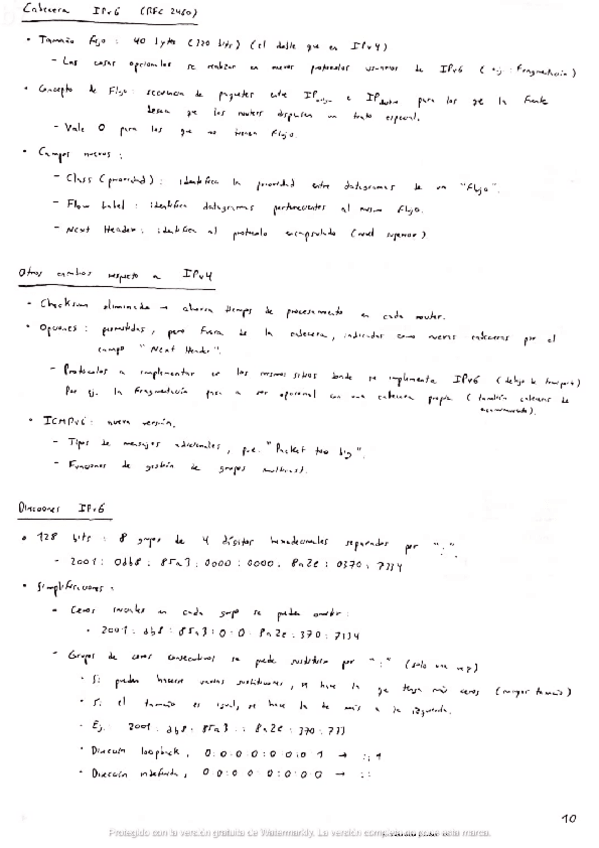 Cabecera IPv6 (RFC 2460)
• Tamaño fijo: 40 bytes (320 bits) (el doble que en IPv4)
- Las cosas opcionales se realizan en nuevos protocolos usuarios de IPv6 (ej: Fragmentación)
• Concepto de Flujo: secuencia de paquetes entre IPorigen e IPdestino para los que la fuente
desea que los routers dispensen un trato especial.
- Vale 0 para los que no tienen Flujo.
• Campos nuevos:
- Class (prioridad): identifica la prioridad entre datagramas de un "Flujo".
- Flow Label: identifica datagramas pertenecientes al mismo Flujo.
- Next Header: identifica al protocolo encapsulado (nivel superior)
Otros cambios respecto a IPv4
• Checksum eliminado → ahorra tiempos de procesamiento en cada router.
• Opciones: permitidas, pero fuera de la cabecera, indicadas como nuevas cabeceras por el
campo "Next Header".
- Protocolos a implementar en los mismos sitios donde se implementa IPv6 (debajo de transporte)
Por ej. la Fragmentación pasa a ser opcional con una cabecera propia (también cabecera de
• ICMPv6: nueva versión.
- Tipos de mensajes adicionales, "Packet too big".
- Funciones de gestión de grupos multicast.
Direcciones IPv6
• 128 bits: 8 grupos de 4 dígitos hexadecimales separados por ":".
- 2001:0db8:85a3:0000:0000:8a2e:0370:7334
• Simplificaciones:
• Ceros iniciales en cada grupo se pueden omitir:
• 2001:db8:85a3:0:0:8a2e:370:7134
- Grupos de ceros consecutivos se puede sustituir por "::" (solo una vez)
• Si pueden hacerse varias sustituciones, se hace la que tenga más ceros (mayor tamaño)
• Si el tamaño es igual, se hace la de más a la izquierda.
- Ej: 2001:db8:85a3::8a2e:370:733
• Dirección loopback, 0:0:0:0:0:0:0:1 → ::1
• Dirección indefinida, 0:0:0:0:0:0:0:0 → ::
10
Protegido con la versión gratuita de Watermarkly. La versión completa no pone esta marca.